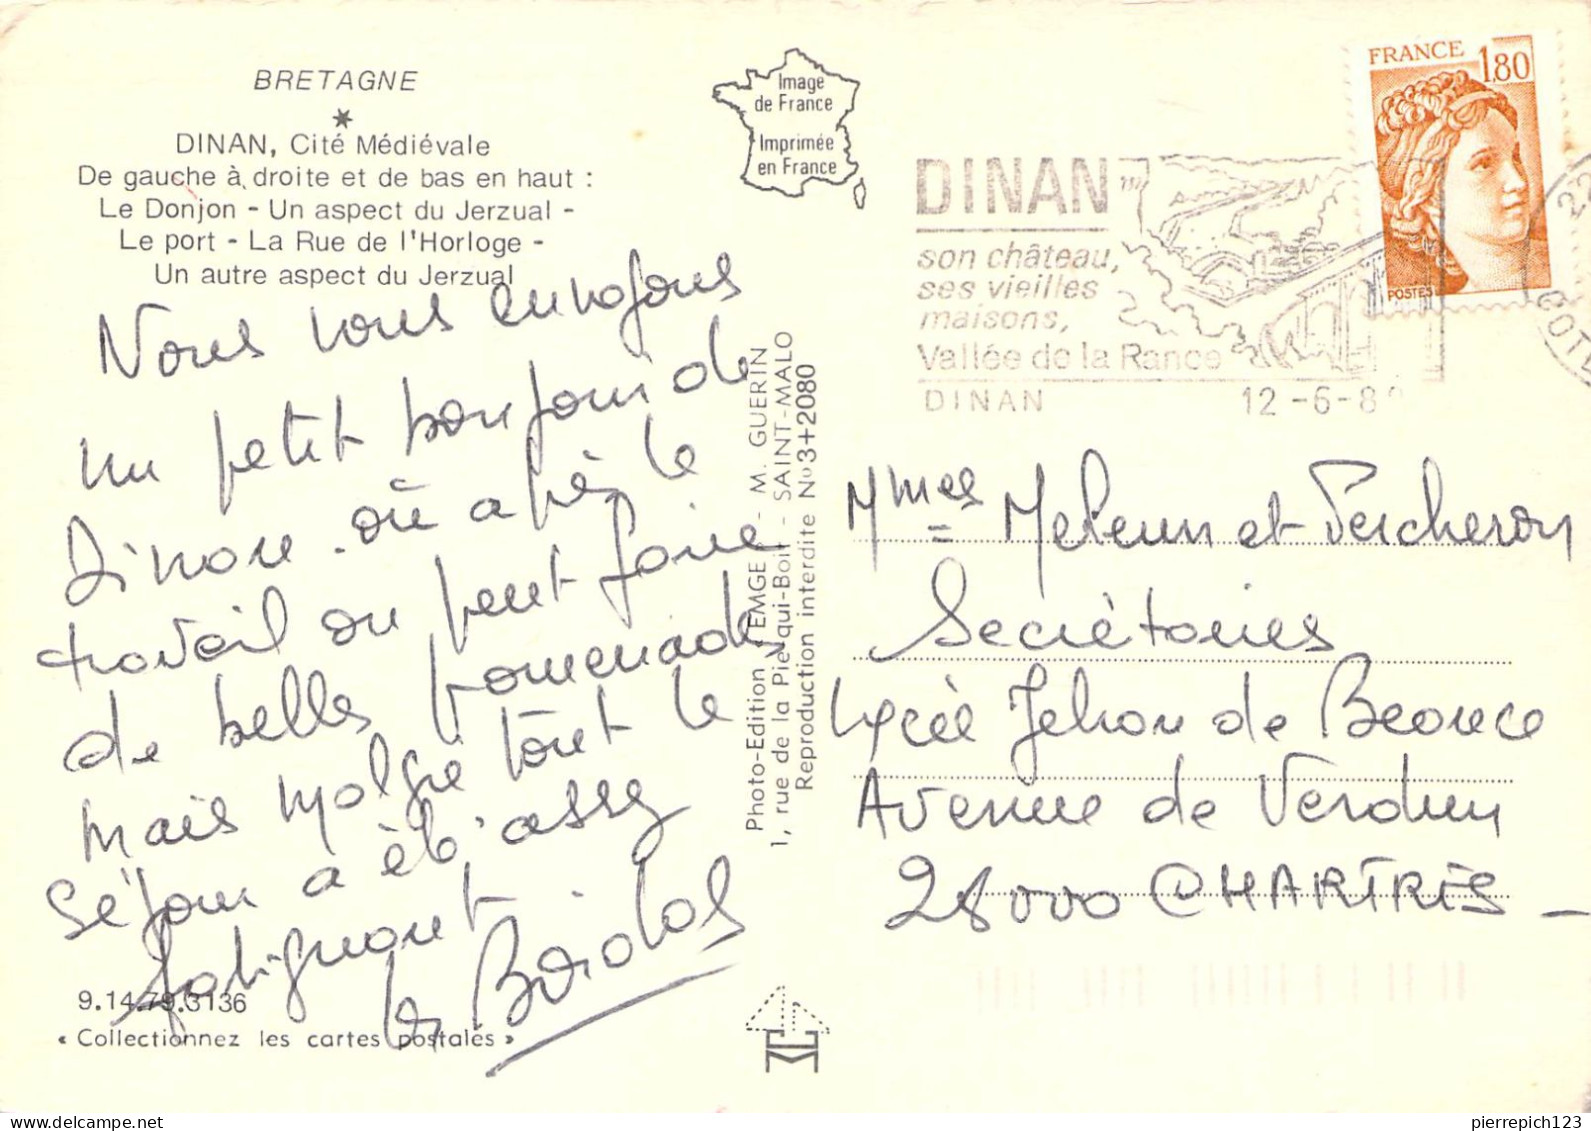 BRETAGNE
*
DINAN, Cité Médiévale
De gauche à droite et de bas en haut :
Le Donjon - Un aspect du Jerzual -
Le port - La Rue de l'Horloge -
Un autre aspect du Jerzual
Nous vous envoyons
un petit bonjour de
Dinan où après le
travail on peut faire
de belles promenades
mais malgré tout le
séjour a été assez
fatiguant
les
9.14.79.3136
« Collectionnez les cartes postales »
Image
de France
Imprimée
en France
Photo-Edition "EMGE" - M. GUERIN
1, rue de la Pie-qui-Boit - SAINT-MALO
Reproduction interdite No3+2080
DINAN
son château,
ses vieilles
maisons,
Vallée de la Rance
DINAN
12-6-8
22
COTE
FRANCE 1,80
POSTES
Mmes Meleun et Percheron
Secrétaires
Lycée Jehan de Beauce
Avenue de Verdun
28000 CHARTRES -
pierrepich123